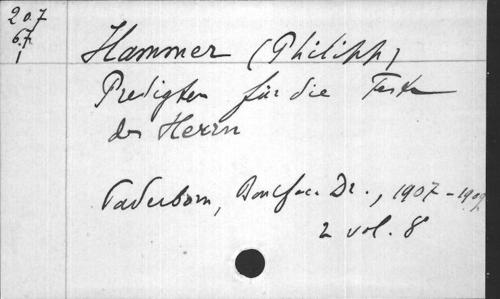 207
67.
1
Hammer (Philipp)
Predigten für die Feste
des Herrn
Paderborn, Bonifac. Dr., 1907-1909
2 vol. 8°